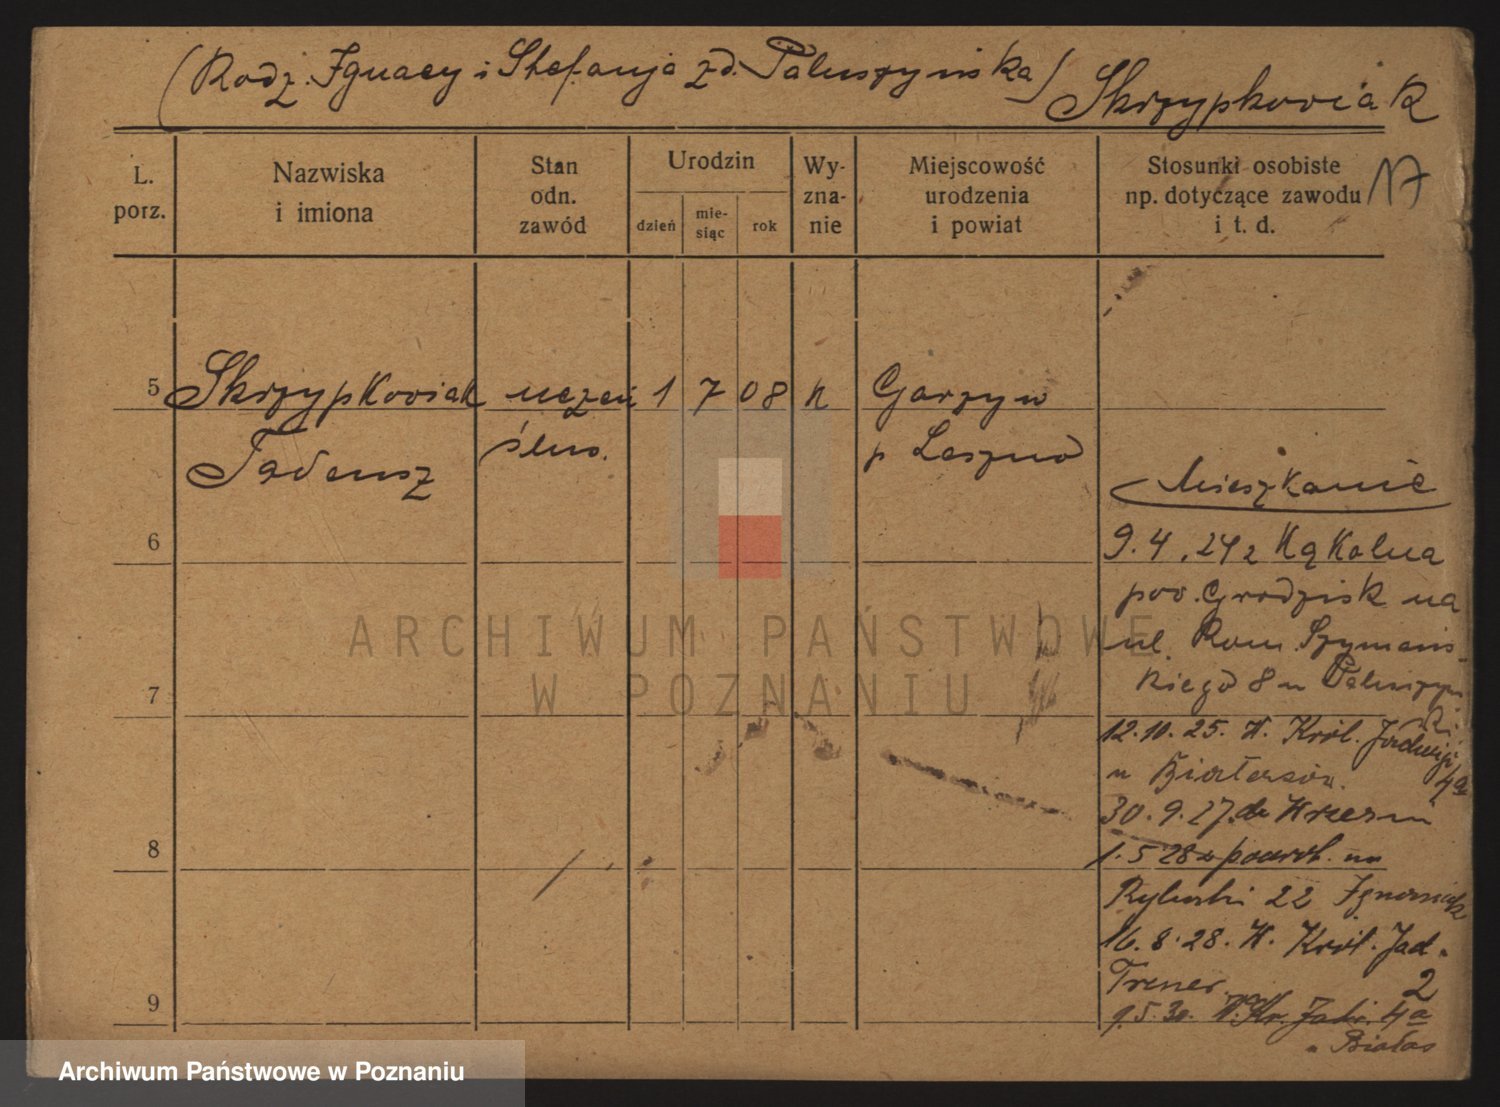 (Rodz. Ignacy i Stefanja zd. Paluszyńska) Skrzypkowiak
17
L. porz.
Nazwiska i imiona
Stan odn. zawód
Urodzin
dzień
mie-siąc
rok
Wy-zna-nie
Miejscowość urodzenia i powiat
Stosunki osobiste np. dotyczące zawodu i t. d.
5 Skrzypkowiak uczeń 1 7 08 k Garzyn
Tadeusz ślus. p Leszno
Mieszkanie
6
9.4.24 z Kąkolna
pow. Grodzisk na
ul. Rom. Szymań-
skiego 8 u Paluszyń
7
12.10.25. W. Król. Jadwigi
u 4a
30.9.27. do Wrześni
8
1.5 28 z powrot. na
Rybaki 22
16.8.28. W. Król. Jad.
Trener 2
9
9.5.30. W. Kr. Jadw. 4a
u Białas
ARCHIWUM PAŃSTWOWE
W POZNANIU
Archiwum Państwowe w Poznaniu